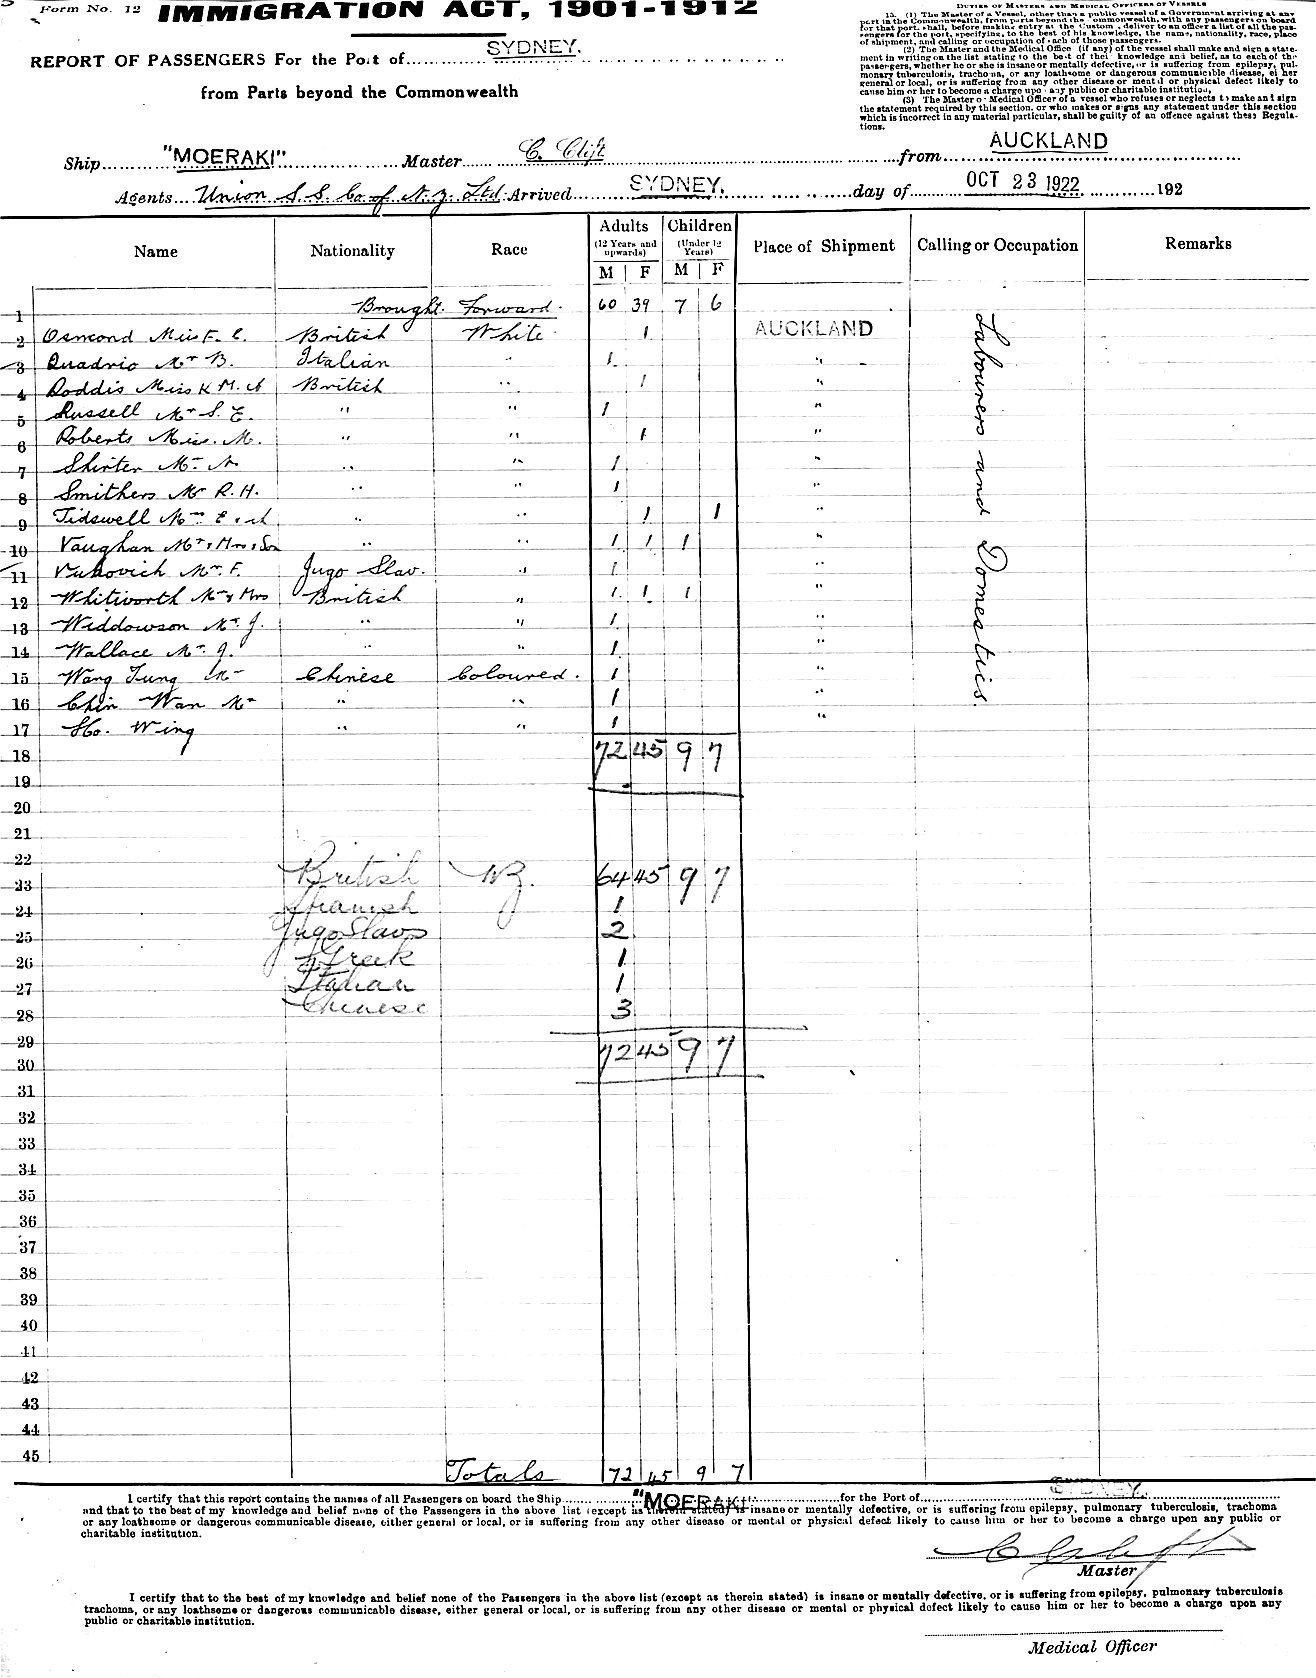 Form No. 12 IMMIGRATION ACT, 1901-1912
REPORT OF PASSENGERS For the Port of SYDNEY.
from Parts beyond the Commonwealth
DUTIES OF MASTERS AND MEDICAL OFFICERS OF VESSELS
15. (1) The Master of a Vessel, other than a public vessel of a Government arriving at any
port in the Commonwealth, from parts beyond the Commonwealth, with any passengers on board
for that port, shall, before making entry at the Custom, deliver to an officer a list of all the pas-
sengers for the port, specifying, to the best of his knowledge, the name, nationality, race, place
of shipment, and calling or occupation of each of those passengers.
(2) The Master and the Medical Office (if any) of the vessel shall make and sign a state-
ment in writing on the list stating to the best of their knowledge and belief, as to each of the
passengers, whether he or she is insane or mentally defective, or is suffering from epilepsy, pul-
monary tuberculosis, trachoma, or any loathsome or dangerous communicable disease, either
general or local, or is suffering from any other disease or mental or physical defect likely to
cause him or her to become a charge upon any public or charitable institution.
(3) The Master or Medical Officer of a vessel who refuses or neglects to make and sign
the statement required by this section, or who makes or signs any statement under this section
which is incorrect in any material particular, shall be guilty of an offence against these Regula-
tions.
Ship "MOERAKI" Master C. Clift from AUCKLAND
Agents Union S.S. Co. of N.Z. Ltd. Arrived SYDNEY. day of OCT 23 1922 192
Name Nationality Race Adults (12 Years and upwards) Children (Under 12 Years) Place of Shipment Calling or Occupation Remarks
M F M F
1 Brought Forward. 60 39 7 6
2 Osmond Miss F. C. British White 1 AUCKLAND
3 Quadrio Mr B. Italian " 1 "
4 Doddis Miss K M. A British " 1 "
5 Russell Mr S. E. " " 1 "
6 Roberts Miss. M. " " 1 "
7 Shirter Mr N " " 1 "
8 Smithers Mr R. H. " " 1 "
9 Tidswell Mrs E & ch " " 1 1 "
10 Vaughan Mr & Mrs & Son " " 1 1 1 "
11 Vukovich Mr. F. Jugo Slav. " 1 "
12 Whitworth Mr & Mrs British " 1 1 1 "
13 Widdowson Mr. J. " " 1 "
14 Wallace Mr. J. " " 1 "
15 Wang Tung Mr Chinese Coloured. 1 "
16 Chin Wan Mr " " 1 "
17 Ho. Wing " " 1 "
Labourers and Domestics.
18 72 45 9 7
19
20
21
22
23 British NZ. 64 45 9 7
24 Spanish 1
25 Jugo Slavs 2
26 Greek 1
27 Italian 1
28 Chinese 3
29 72 45 9 7
30
31
32
33
34
35
36
37
38
39
40
41
42
43
44
45
Totals 72 45 9 7
I certify that this report contains the names of all Passengers on board the Ship "MOERAKI" for the Port of SYDNEY.
and that to the best of my knowledge and belief none of the Passengers in the above list (except as therein stated) insane or mentally defective, or is suffering from epilepsy, pulmonary tuberculosis, trachoma
or any loathsome or dangerous communicable disease, either general or local, or is suffering from any other disease or mental or physical defect likely to cause him or her to become a charge upon any public or
charitable institution.
C Clift
Master
I certify that to the best of my knowledge and belief none of the Passengers in the above list (except as therein stated) is insane or mentally defective, or is suffering from epilepsy, pulmonary tuberculosis
trachoma, or any loathsome or dangerous communicable disease, either general or local, or is suffering from any other disease or mental or physical defect likely to cause him or her to become a charge upon any
public or charitable institution.
Medical Officer